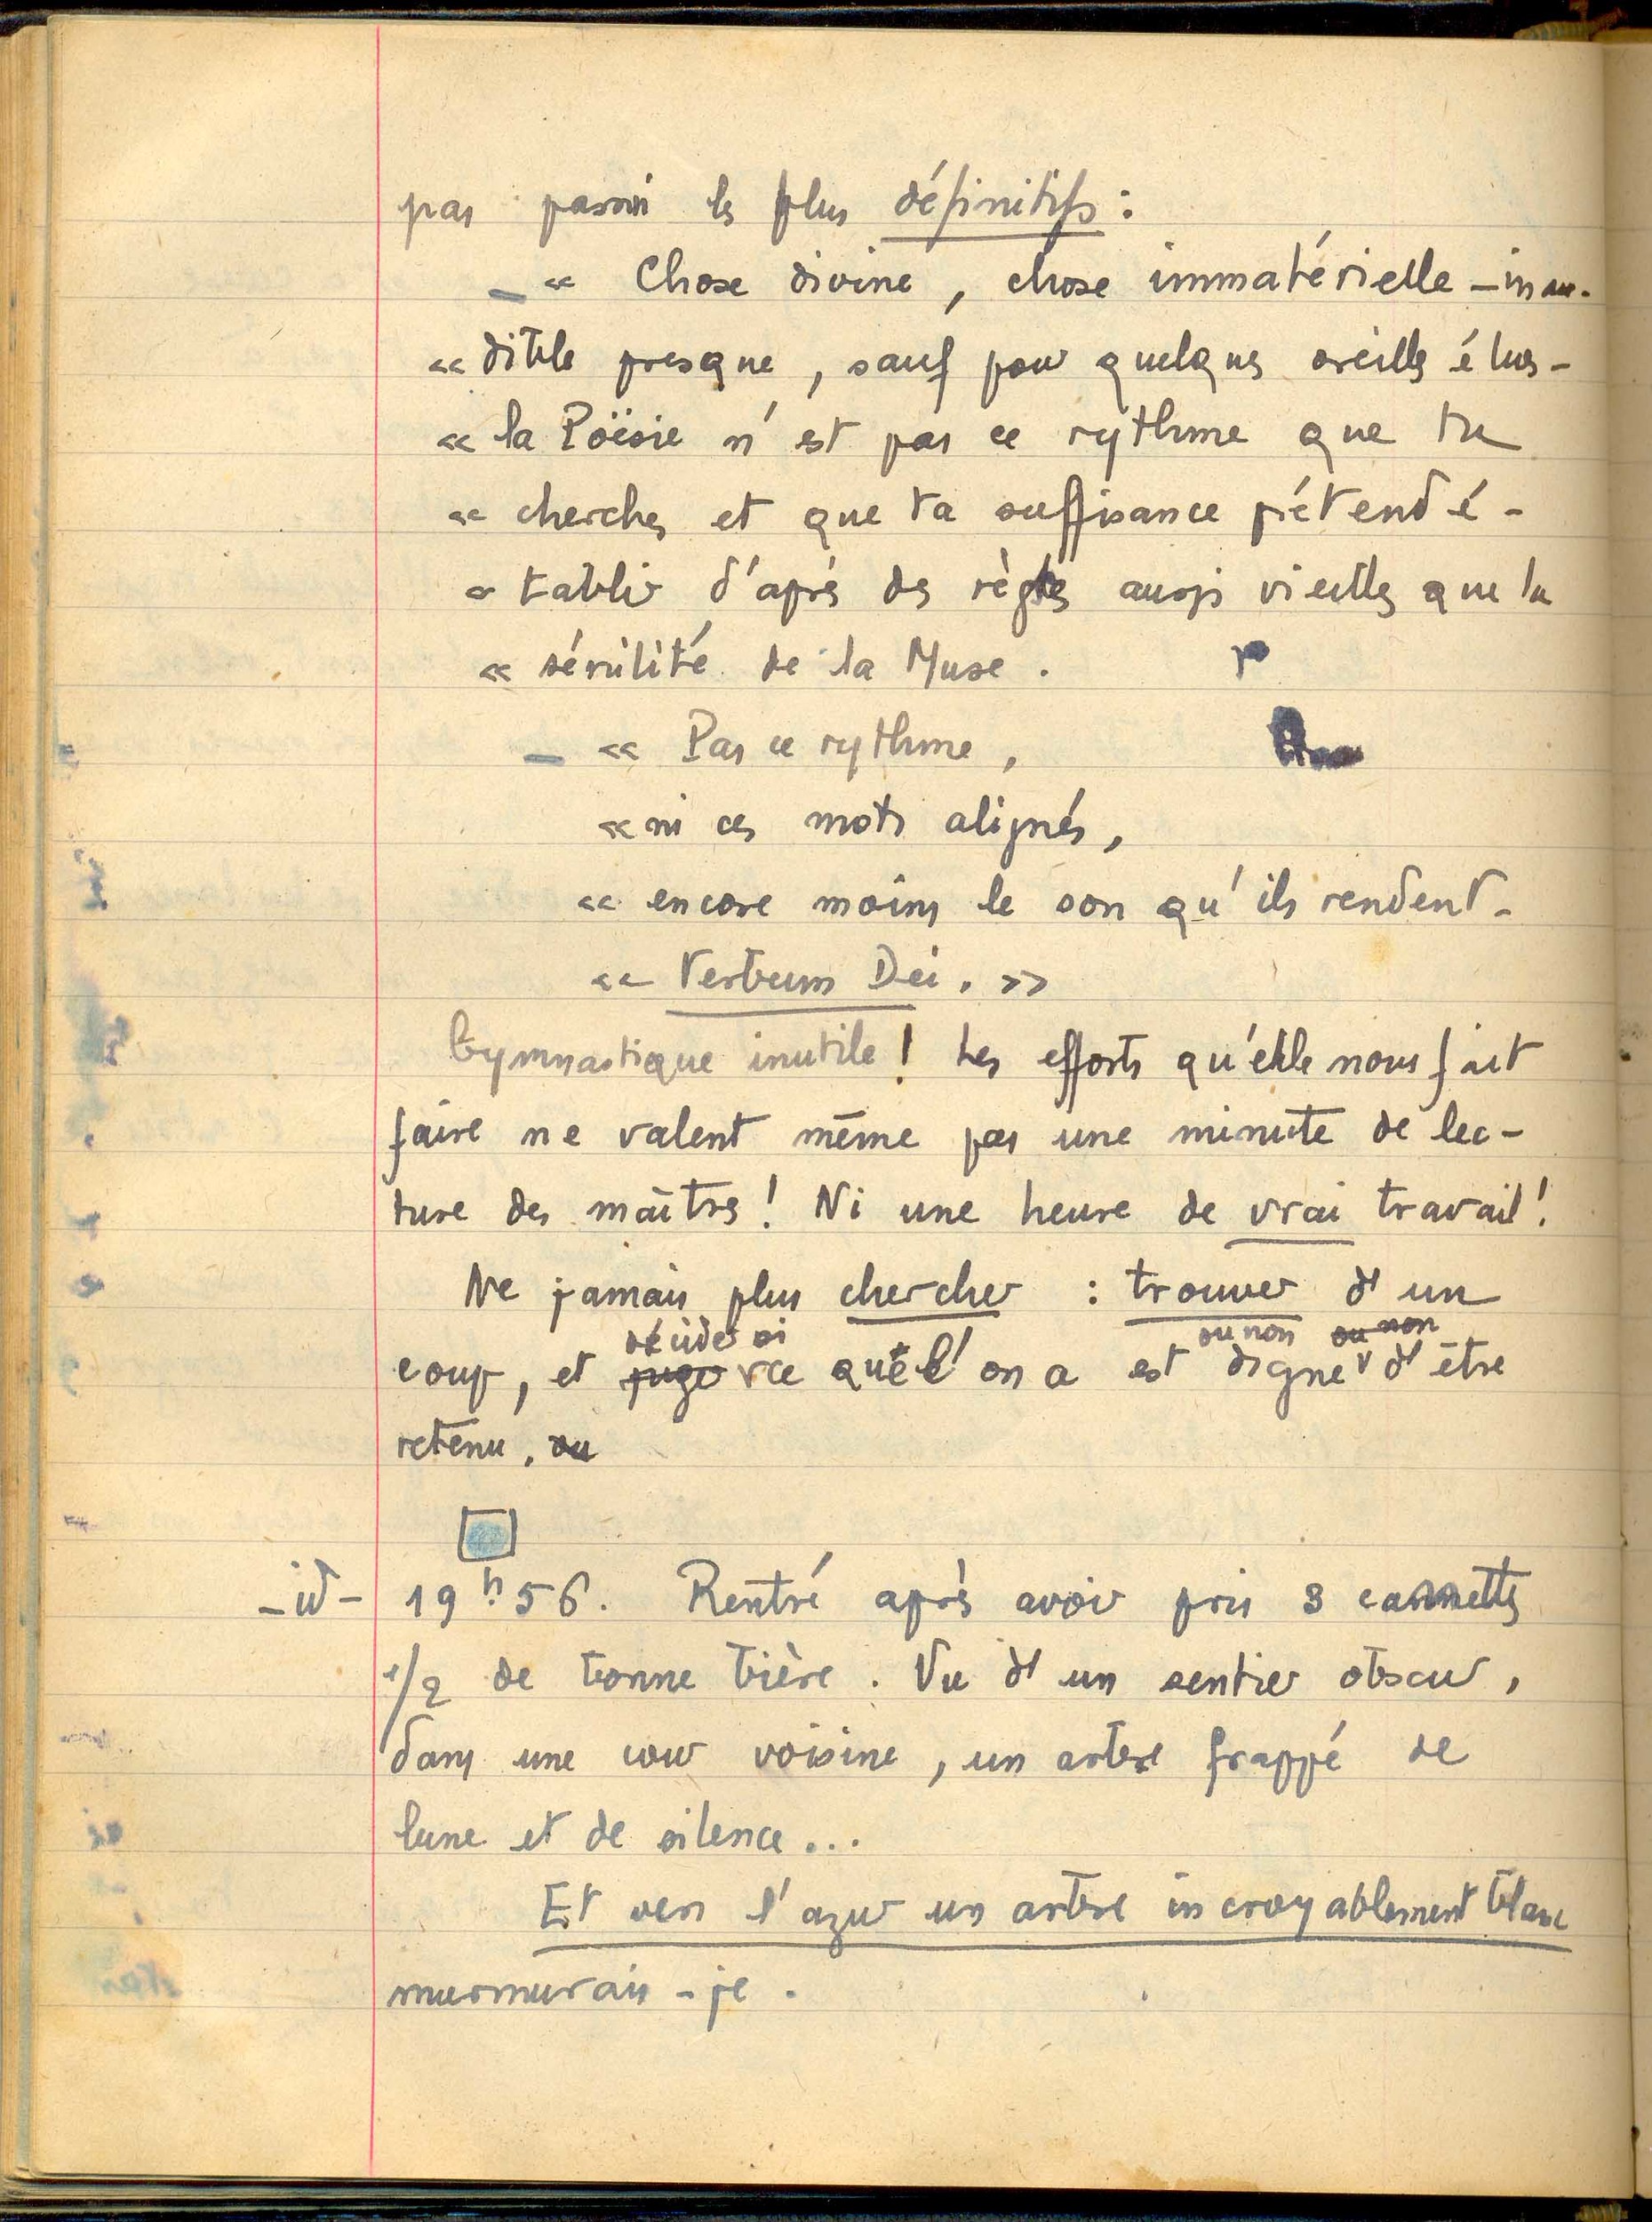 pas parmi les plus définitifs :
– « Chose divine, chose immatérielle – inau-
« dible presque, sauf pour quelques oreilles élues –
« la Poësie n'est pas ce rythme que tu
« cherches et que ta suffisance prétend é-
« tablir d'après des règles aussi vieilles que la
« sénilité de la Muse.
– « Pas ce rythme,
« ni ces mots alignés,
« encore moins le son qu'ils rendent –
« Verbum Dei. »
Gymnastique inutile ! Les efforts qu'elle nous fait
faire ne valent même pas une minute de lec-
ture des maîtres ! Ni une heure de vrai travail !
Ne jamais plus chercher : trouver d'un
décider si ou non ou non
coup, et juger ce que l'on a est digne d'être
retenu. ou
– id – 19h56. Rentré après avoir pris 3 cannettes
1/2 de bonne bière. Vu d'un sentier obscur,
dans une cour voisine, un arbre frappé de
lune et de silence...
Et vers l'azur un arbre incroyablement blanc
murmurais-je.